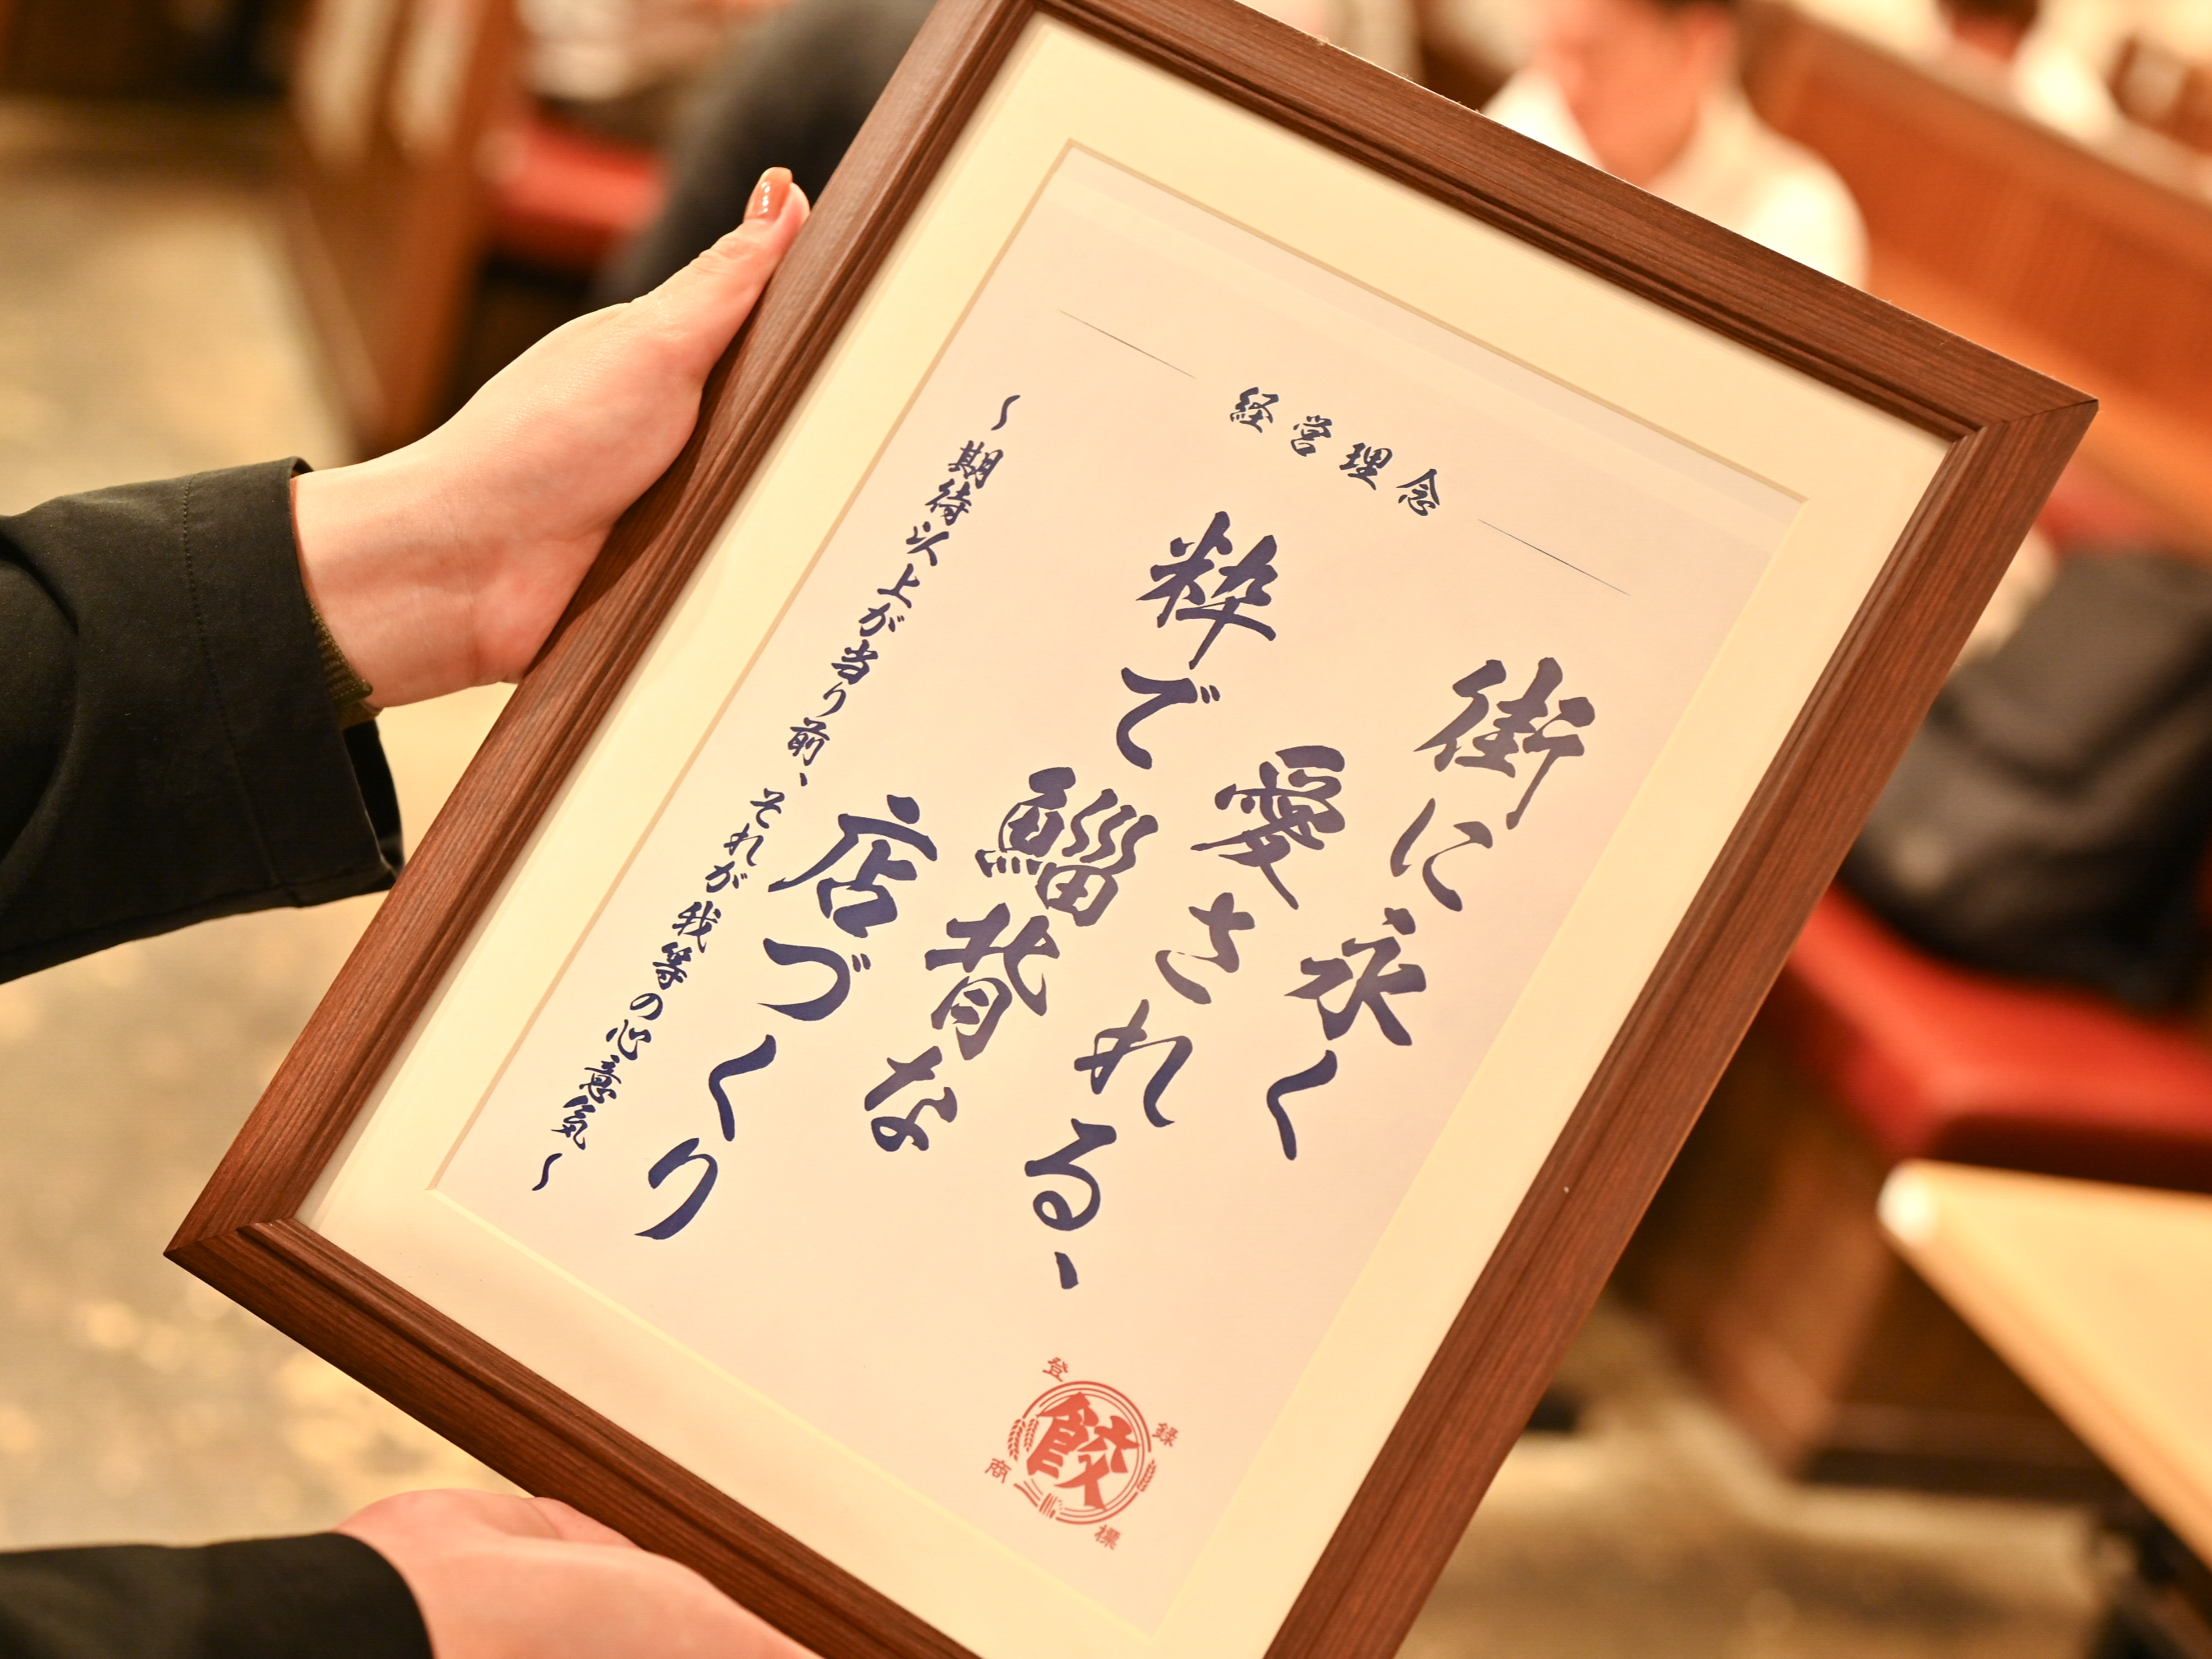 経営理念
街に永く
愛される、
粋で鯔背な
店づくり
〜期待以上が当り前、それが我等の心意気〜
登録商標
餃